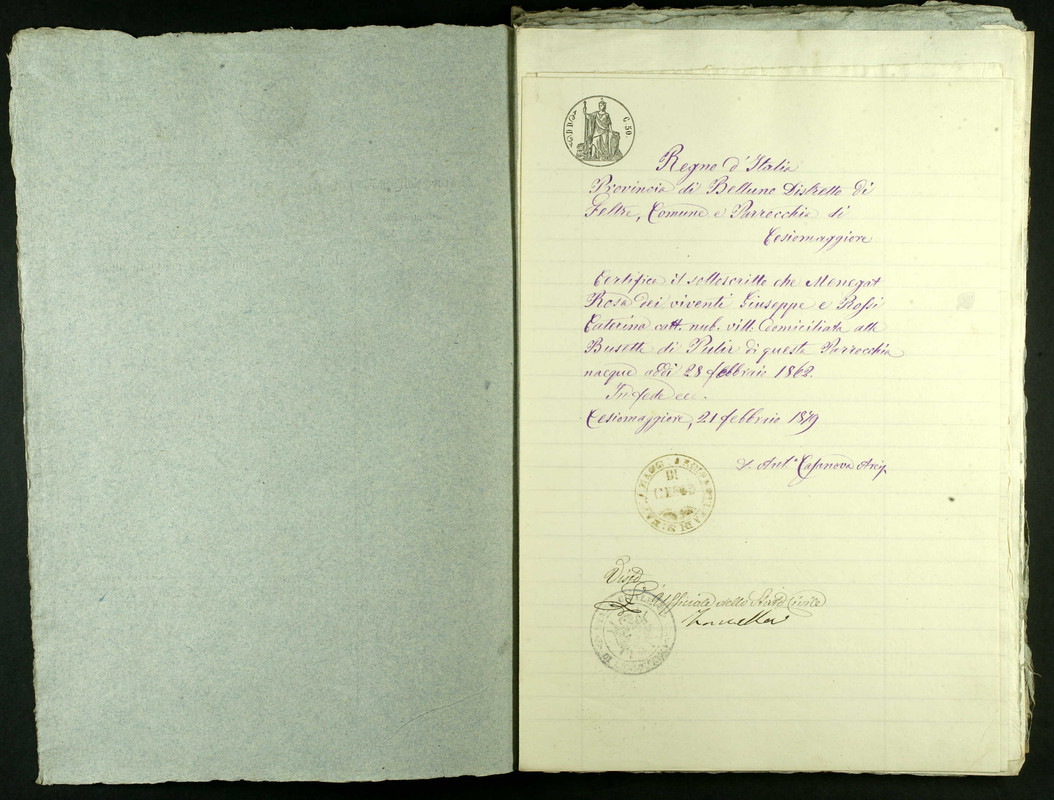 C. 50
Regno d'Italia
Provincia di Belluno Distretto di
Feltre, Comune e Parrocchia di
Cesiomaggiore
Certifica il sottoscritto che Menegat
Rosa dei viventi Giuseppe e Rossi
Caterina catt. nub. vill. domiciliata alla
Busetta di Pulir di questa Parrocchia
nacque addì 28 febbraio 1862.
In fede ec.
Cesiomaggiore, 21 febbraio 1879
D. Ant.o Casanova Arcip.
DI
Visto
L'Ufficiale dello Stato Civile